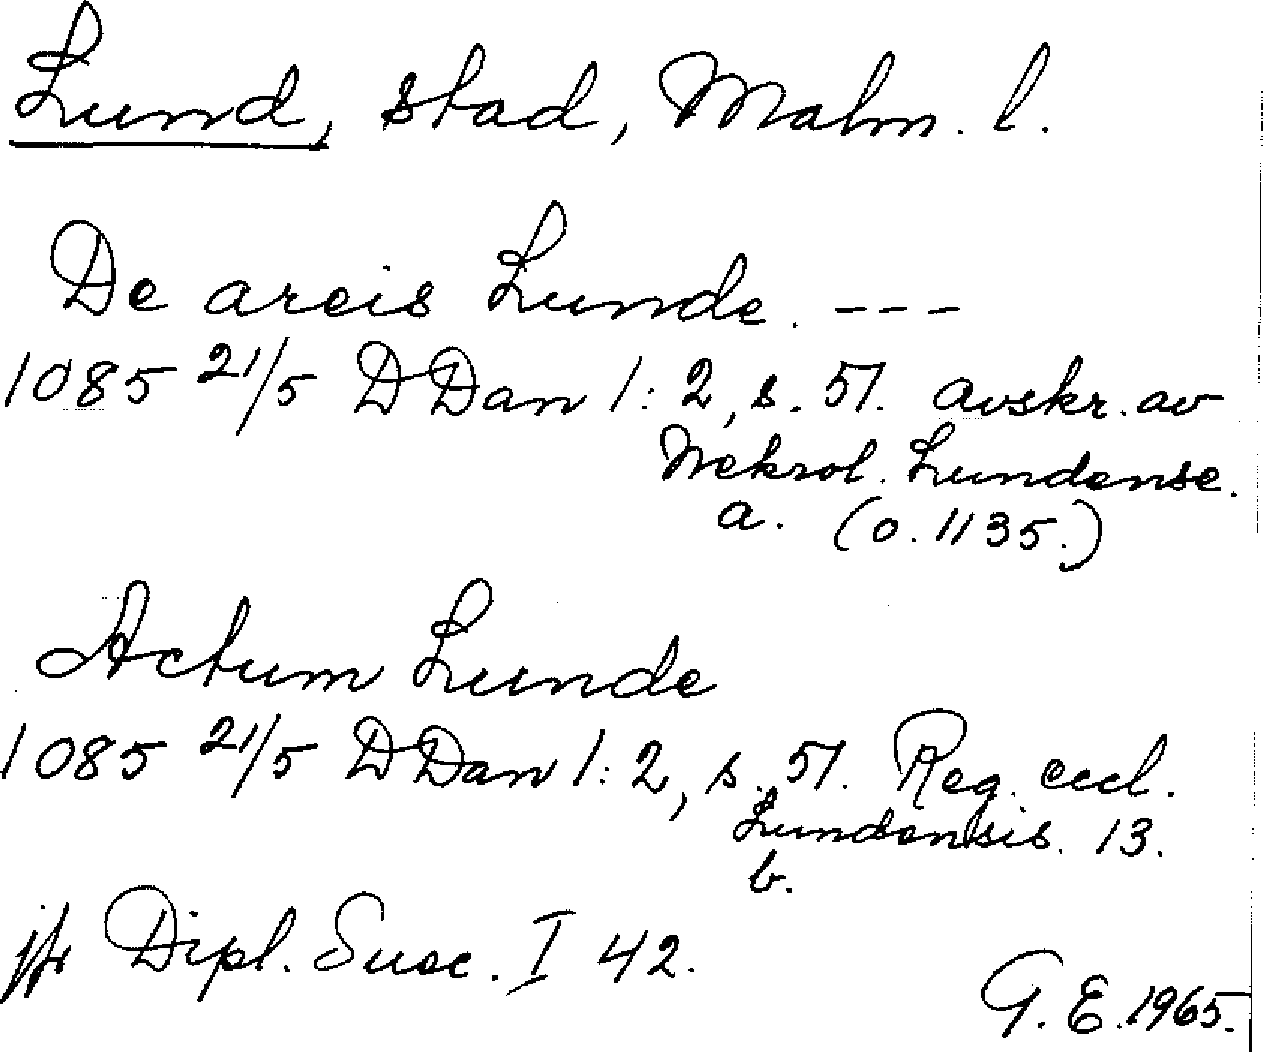 Lund, stad, Malm. l.
De areis Lunde. ---
1085 21/5 DDan 1:2, s. 51. avskr. av
Nekrol. Lundense.
a. (o. 1135.)
Actum Lunde
1085 21/5 DDan 1:2, s. 51. Reg. eccl.
Lundensis. 13.
b.
jfr Dipl. Suec. I 42.
G. E. 1965.